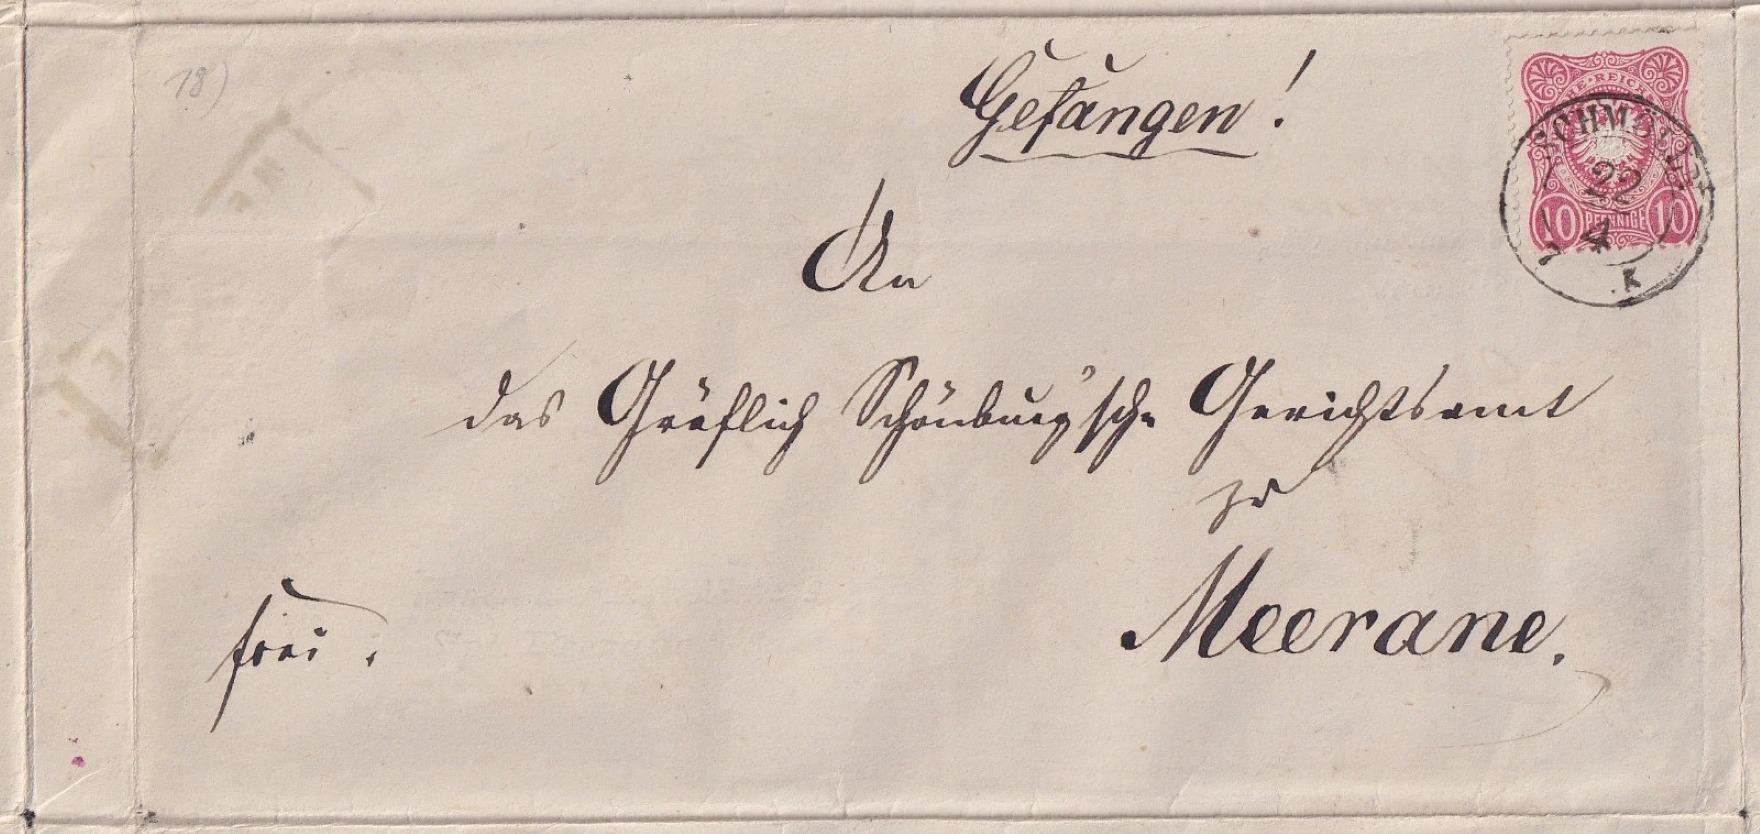 18)
Gefangen!
REICH
10 PFENNIGE 10
22
4
K
An
das Gräflich Schönburg'sche Gerichtsamt
zu
Meerane.
frei.